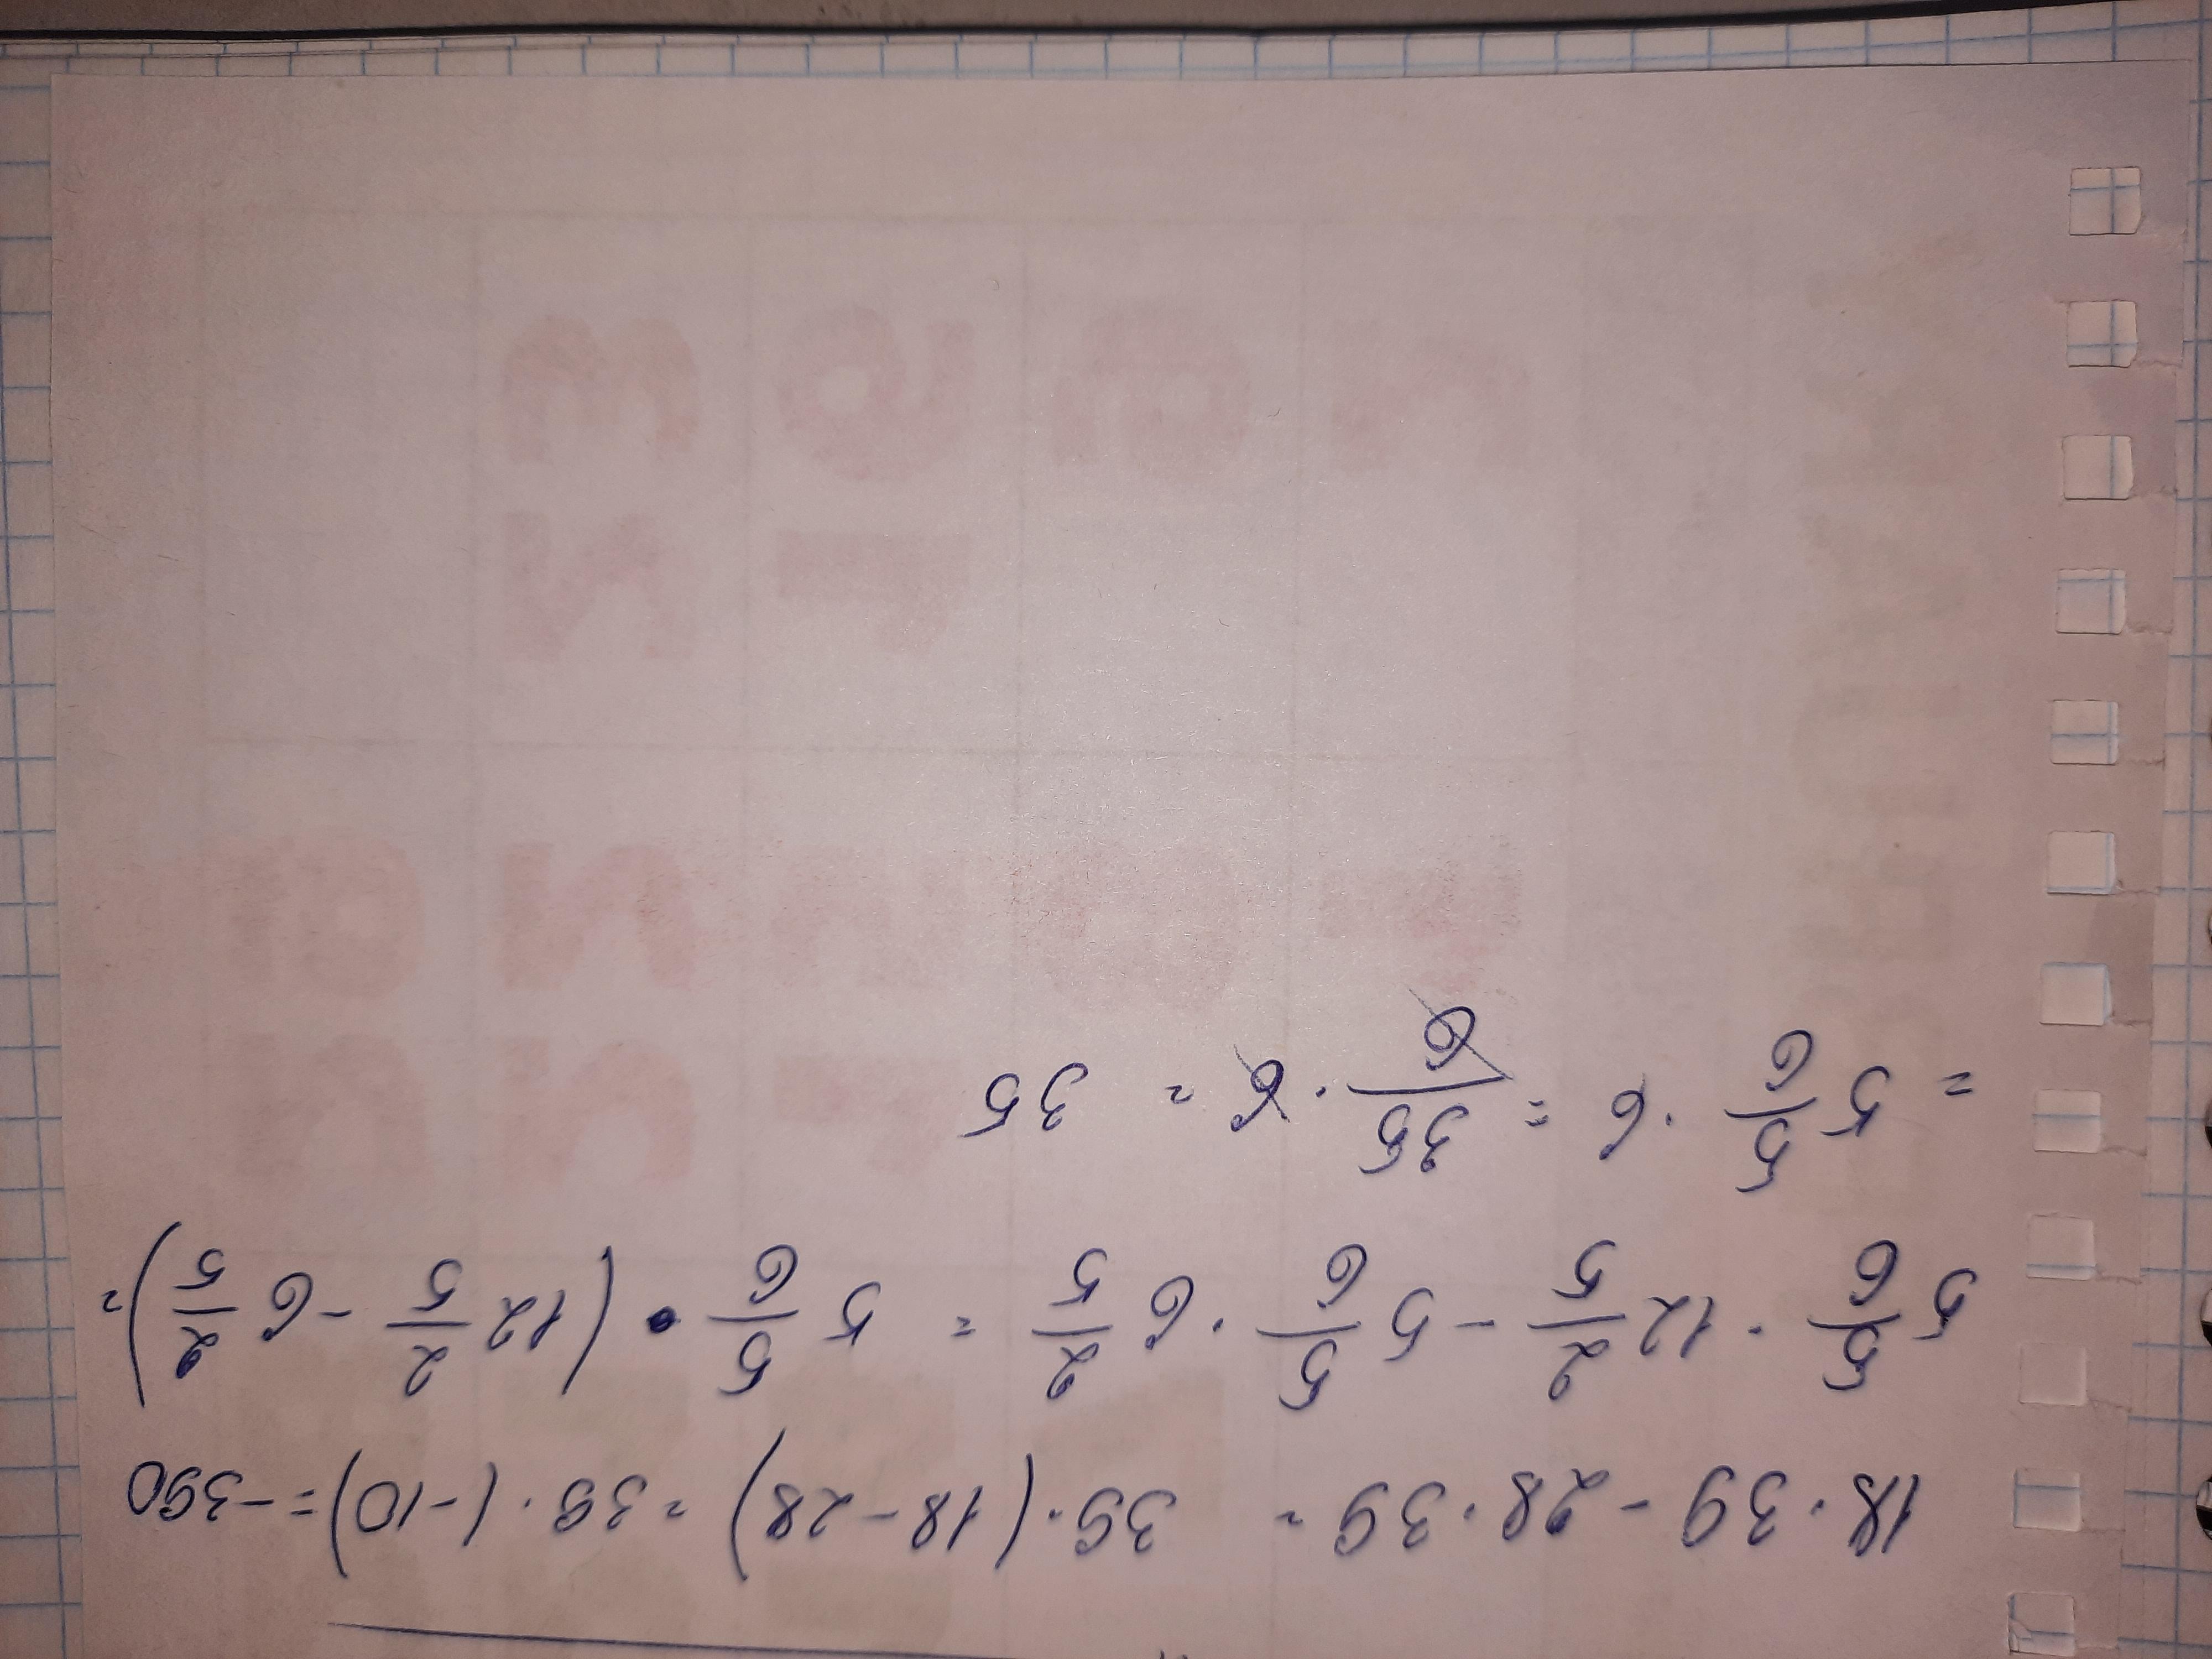 18 · 39 - 28 · 39 = 39 · (18 - 28) = 39 · (-10) = -390
5 5/6 · 12 2/5 - 5 5/6 · 6 2/5 = 5 5/6 · (12 2/5 - 6 2/5) =
= 5 5/6 · 6 = 35/6 · 6 = 35